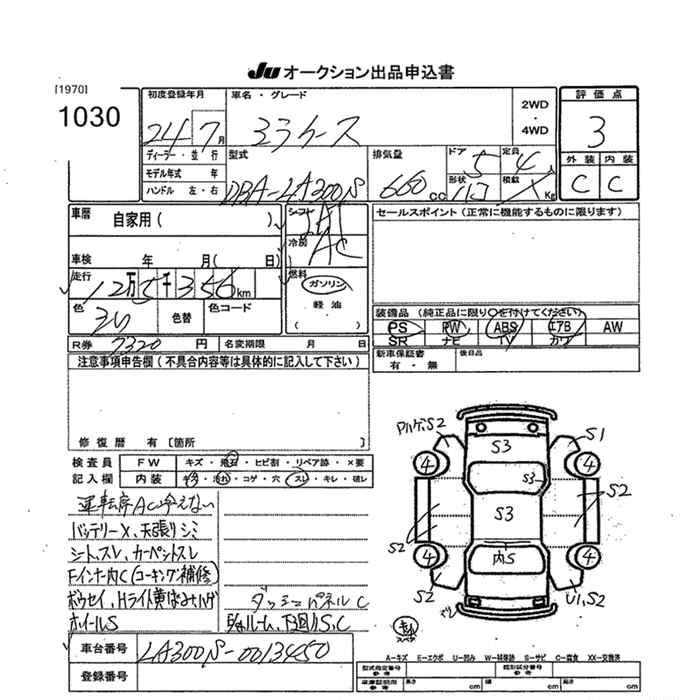 JU オークション出品申込書
[1970]
1030
初度登録年月
24 7月
車名・グレード
ミライース
2WD
・
4WD
評価点
3
外装 内装
C C
ディーラー・並行
モデル年式 年
ハンドル 左・右
型式
DBA-LA300S
排気量
660cc
ドア 5
形状
定員 4
積載 Kg
車歴
自家用( )
車検 年 月( 日)
走行
12万 千356km
色
色替
色コード
シフト
IAT
冷房
AC
燃料
ガソリン
軽油
( )
セールスポイント(正常に機能するものに限ります)
装備品(純正品に限り○を付けてください)
PS PW ABS エアB AW
SR ナビ TV カワ
新車保証書
有・無
後日品
R券 7320円
名変期限 月 日
注意事項申告欄(不具合内容等は具体的に記入して下さい)
修復歴 有[箇所 ]
検査員
記入欄
FW キズ・飛石・ヒビ割・リペア跡・×要
内装 キズ・汚れ・コゲ・穴・スレ・キレ・破レ
運転席AC冷えない
バッテリーX、天張りシミ
シートスレ、カーペットスレ
Fインナー内C(コーキング補修)
ボウセイ、Hライト黄ばみ
ホイールS
ダッシュパネルC
下廻りS、C
S2
S1
S3
4
4
S3
S2
S3
S2
内S
4
4
S2
U1、S2
車台番号
LA300S-0013450
登録番号
A-キズ E-エクボ U-凹み W-補修跡 S-サビ C-腐食 XX-交換済
型式指定番号
参考
類別区分番号
参考
車庫証明用
参考
長さ cm
幅 cm
高さ cm